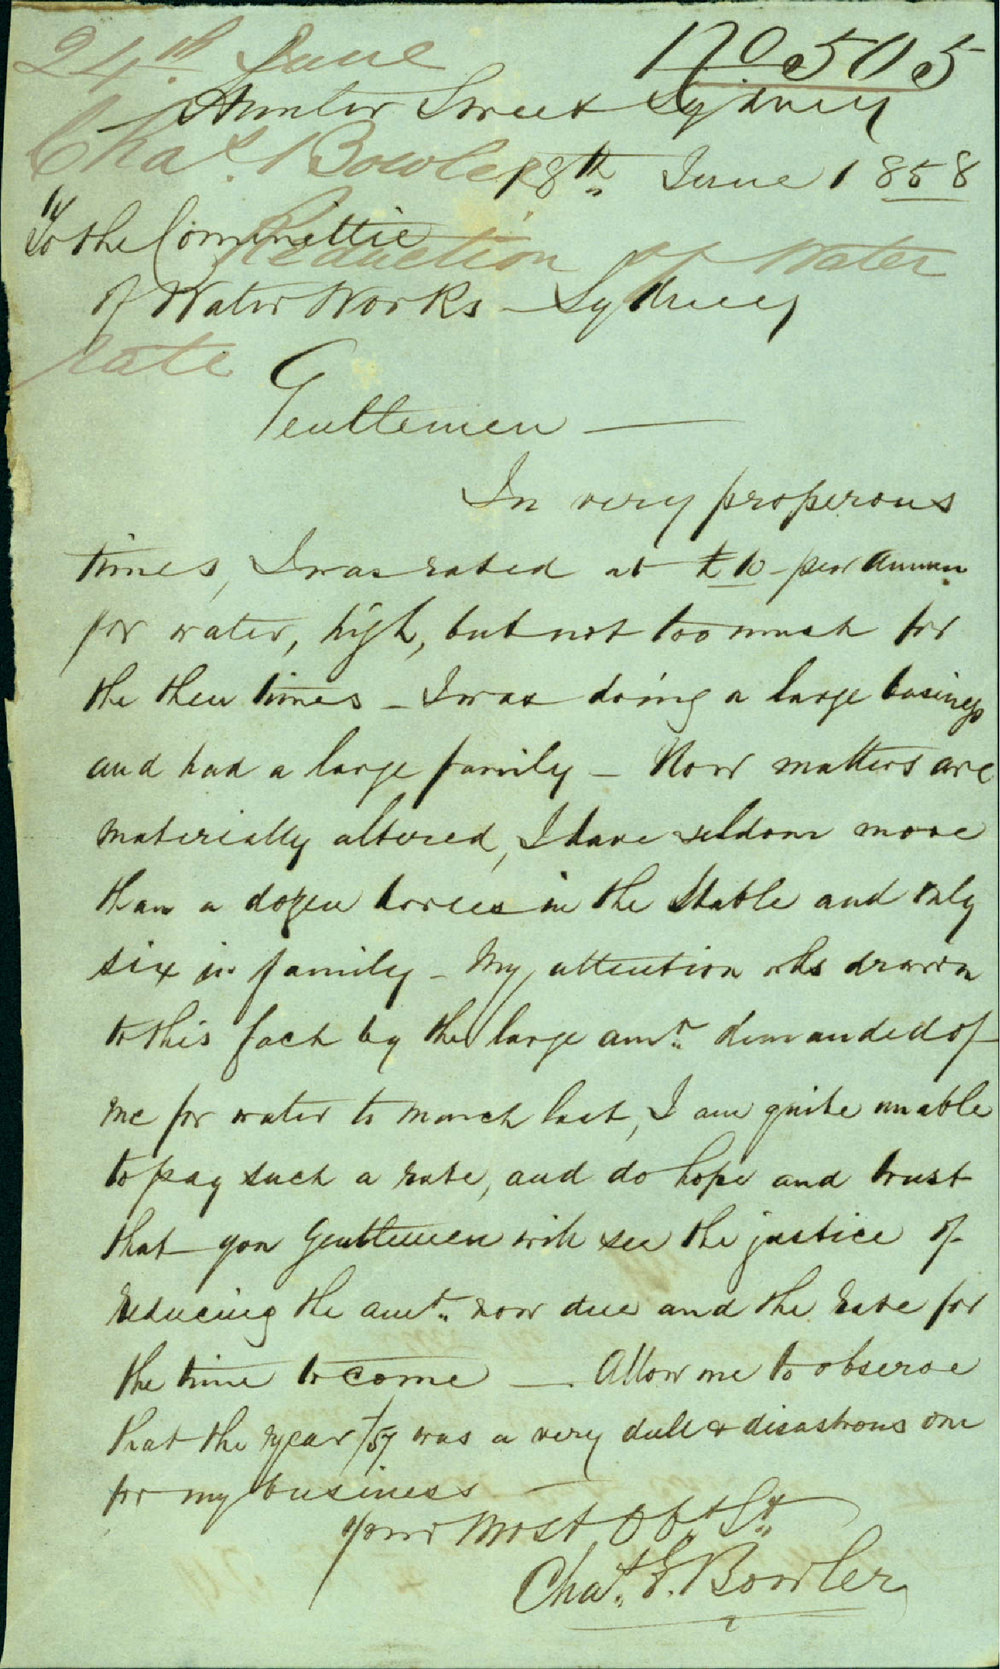 24th June
No 505
Hunter Street Sydney
Chas. Bowler
18th June 1858
To the Committie
Reduction of Water
of Water Works - Sydney
rate
Gentlemen —
In very properous
times, I was rated at £10 - per Annum
for water, high, but not too much for
the then times - I was doing a large business
and had a large family - Now matters are
materially altered, I have seldom more
than a dozen horses in the Stable and only
six in family - My attention was drawn
to this fact by the large amt. demanded of
me for water to March last, I am quite unable
to pay such a rate, and do hope and trust
that you Gentlemen will see the justice of
reducing the amt. now due and the rate for
the time to come — Allow me to observe
that the year /57 was a very dull & disastrous one
for my business —
Your Most Obt St
Chas. E. Bowler